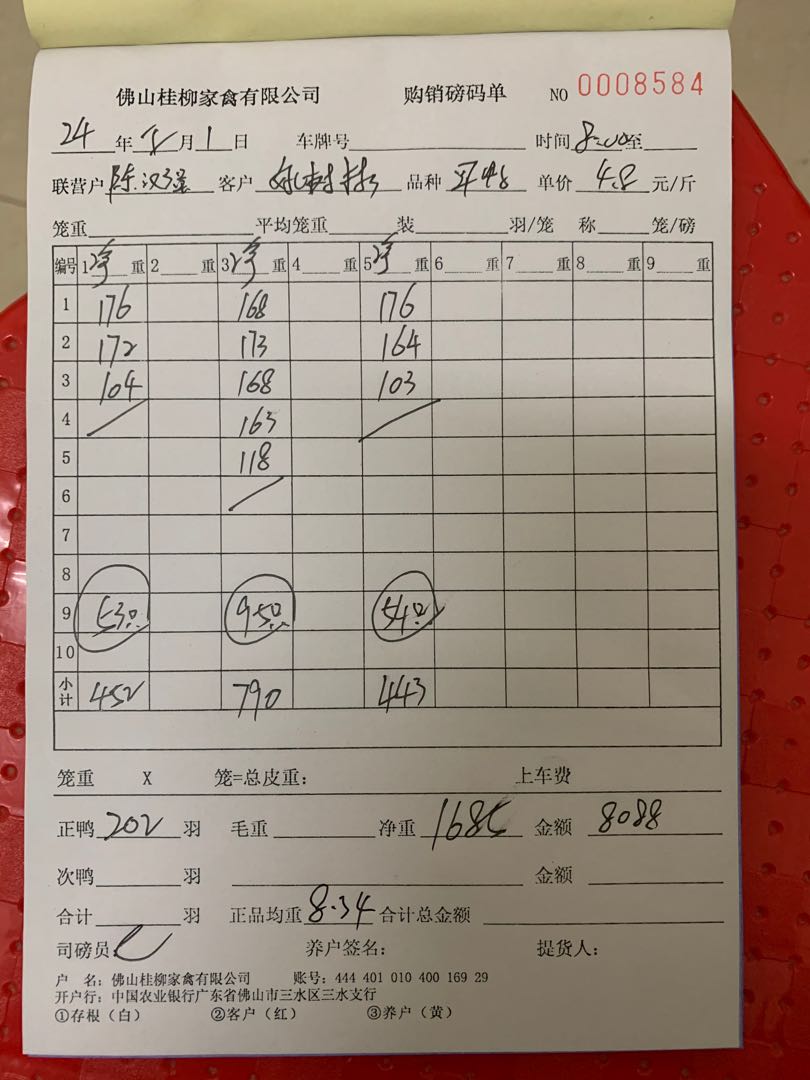 佛山桂柳家禽有限公司 购销磅码单 NO 0008584
24年 月1日 车牌号 时间8:00至
联营户陈汉强 客户 品种 单价4.8元/斤
笼重 平均笼重 装 羽/笼 称 笼/磅
编号 1净重 2 重 3净重 4 重 5净重 6 重 7 重 8 重 9 重
1 176 168 176
2 172 173 164
3 104 168 103
4 163
5 118
6
7
8
9 53只 95只 54只
10
小计 452 790 443
笼重 X 笼=总皮重: 上车费
正鸭202羽 毛重 净重1685 金额8088
次鸭 羽 金额
合计 羽 正品均重8.34 合计总金额
司磅员: 养户签名: 提货人:
户 名:佛山桂柳家禽有限公司 账号:444 401 010 400 169 29
开户行:中国农业银行广东省佛山市三水区三水支行
①存根(白) ②客户(红) ③养户(黄)